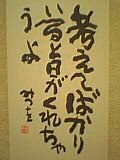 考えてばかり
いると日がくれちゃ
うよ みつを